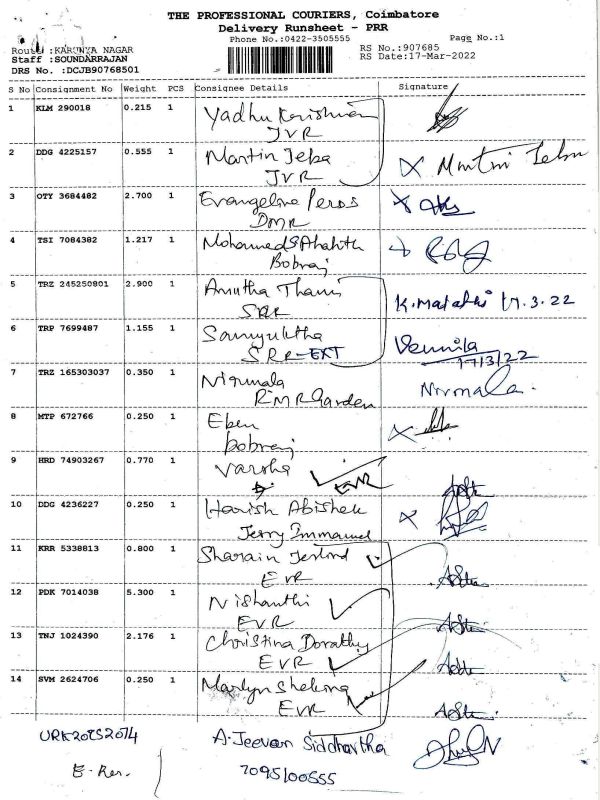 THE PROFESSIONAL COURIERS, Coimbatore
Delivery Runsheet - PRR
Phone No.:0422-3505555 Page No.:1
Route :KARUNYA NAGAR RS No.:907685
Staff :SOUNDARRAJAN RS Date:17-Mar-2022
DRS No. :DCJB90768501
S No Consignment No Weight PCS Consignee Details Signature
1 KLM 290018 0.215 1 Yadhu Krishnan
JVR
2 DDG 4225157 0.555 1 Martin Jeba
JVR
3 OTY 3684482 2.700 1 Evangeline
DMR
4 TSI 7084382 1.217 1 Mohamed
Bobraj
5 TRZ 245250801 2.900 1 Amutha
SRR K. Malathi 17.3.22
6 TRP 7699487 1.155 1 Samyuktha Vennila
SRR-EXT 17/3/22
7 TRZ 165303037 0.350 1 Nirmala Nirmala.
RMR Garden
8 MTP 672766 0.250 1 Eben
Bobraj
9 HRD 74903267 0.770 1 Varsha
EVR
10 DDG 4236227 0.250 1 Harish Abishek
Jerry Immanuel
11 KRR 5338813 0.800 1 Sharain
EVR
12 PDK 7014038 5.300 1 Nishanthi
EVR
13 TNJ 1024390 2.176 1 Christina Dorathy
EVR
14 SVM 2624706 0.250 1 Marlyn
EVR
URK20CS2014 A. Jeevan Siddhartha
7095100555